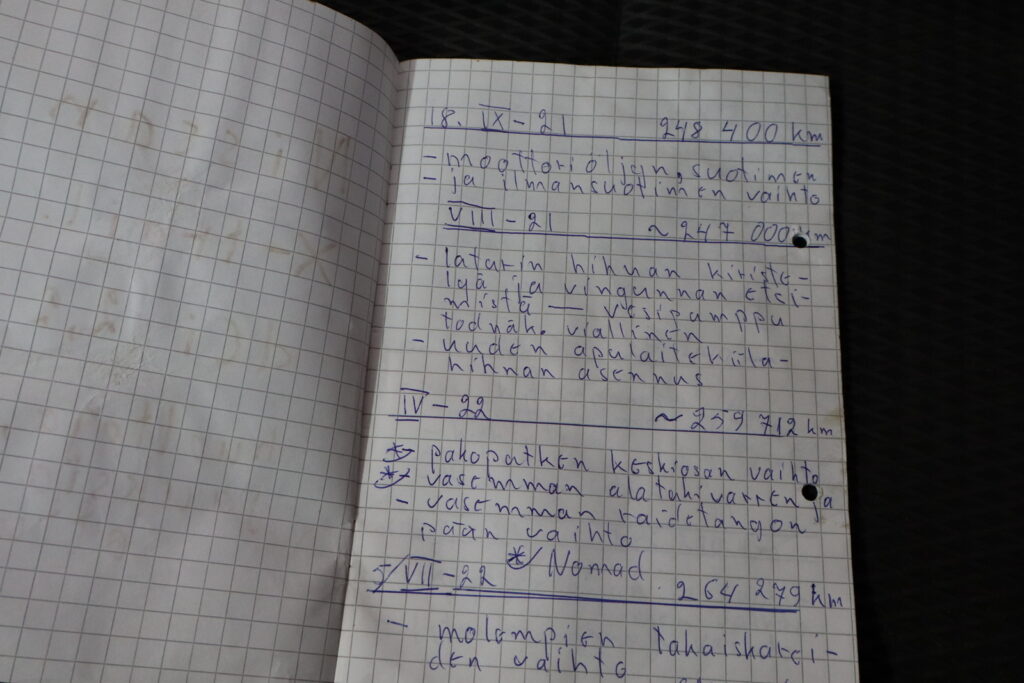 18. IX - 21 248 400 km
- moottoriöljyn, suotimen
- ja ilmansuotimen vaihto
VIII - 21 ~ 247 000 km
- laturin hihnan kiriste-
lyä ja vingunnan etsi-
mistä — vesipumppu
todnäk. viallinen
- uuden apulaitekiila-
hihnan asennus
IV - 22 ~ 259 712 km
* pakoputken keskiosan vaihto
* vasemman alatukivarren ja
- vasemman raidetangon
pään vaihto
* Nomad
5/VII - 22 264 279 km
- molempien takaiskarei-
den vaihto